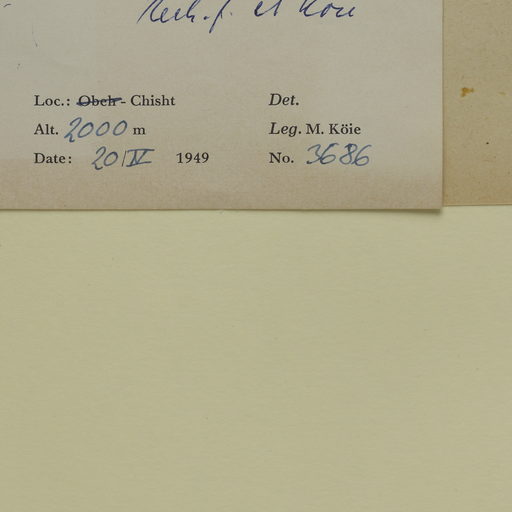 Rech. f. et Köie
Loc.: Obeh - Chisht
Det.
Alt. 2000 m
Leg. M. Köie
Date: 20/IV 1949
No. 3686